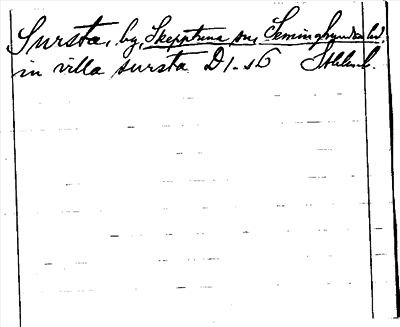 Sursta, by, Skepptuna sn, Seminghundra hd.
in villa sursta D 1. s6 Sthlms l.